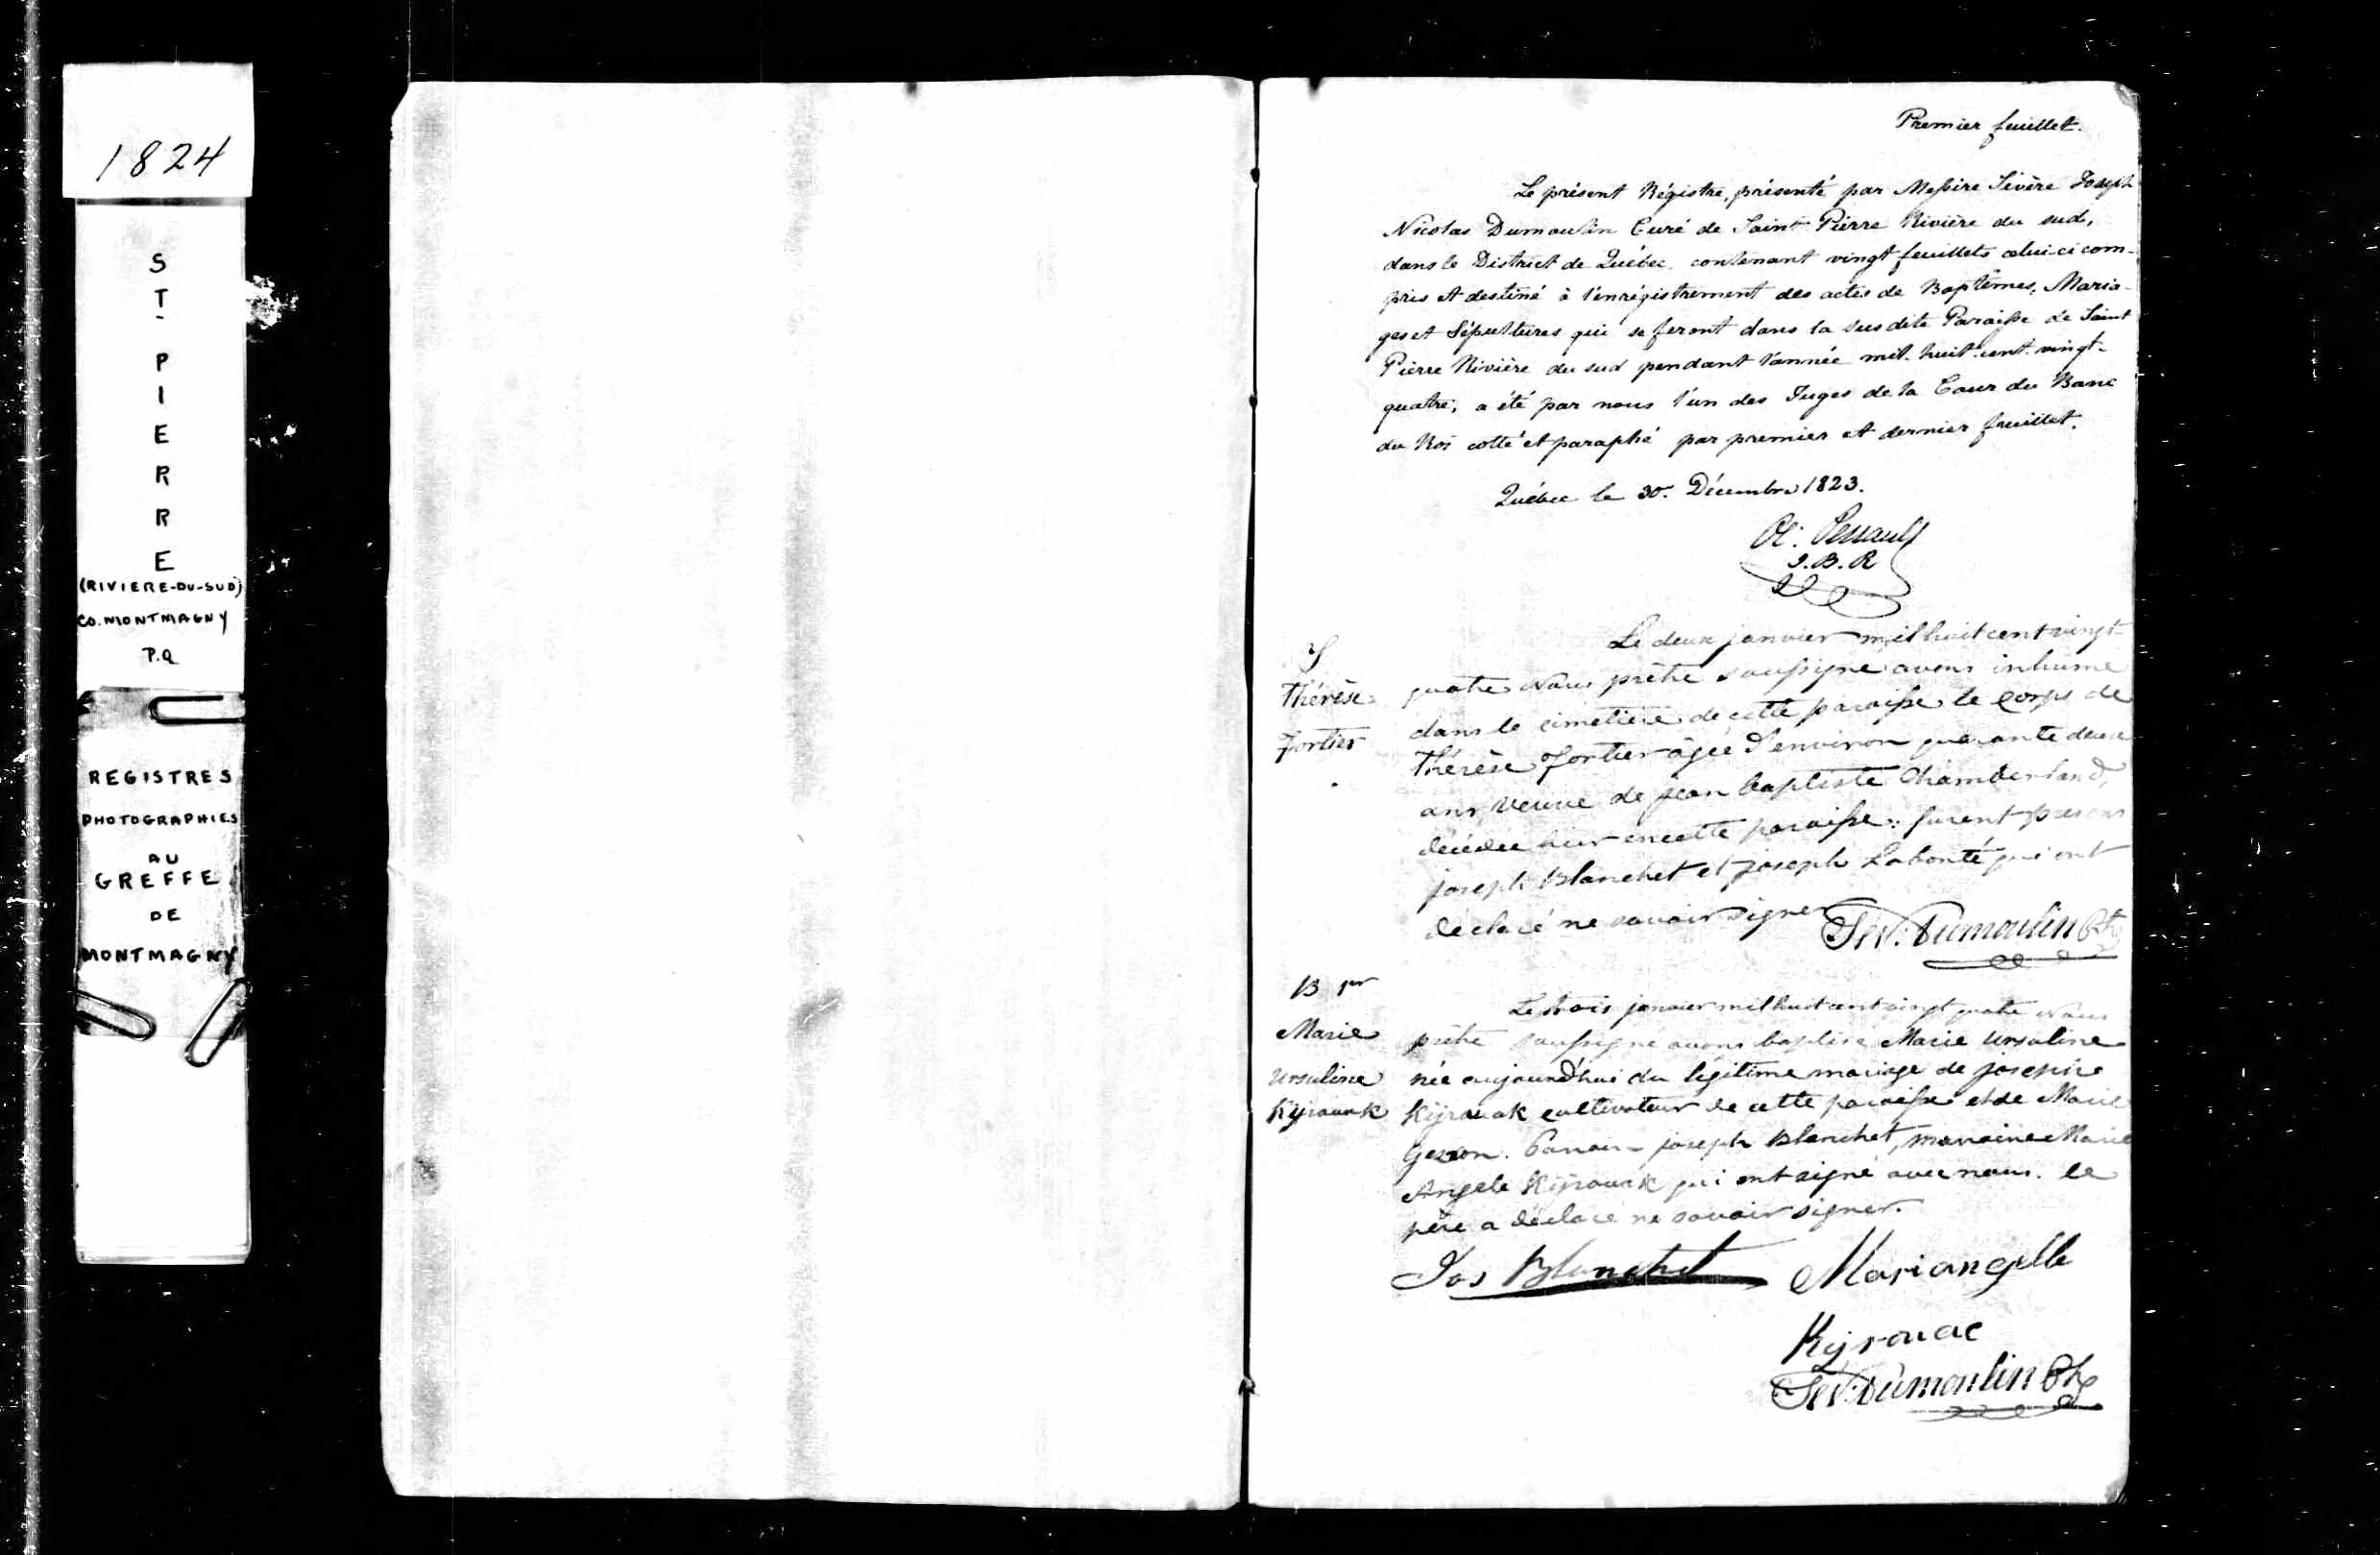 1824
ST. PIERRE
(RIVIERE-DU-SUD)
CO. MONTMAGNY
P.Q
REGISTRES
PHOTOGRAPHIES
AU
GREFFE
DE
MONTMAGNY
Premier feuillet.
Le présent Régistre, présenté par Messire Sévère Joseph
Nicolas Dumoulin Curé de Saint Pierre Rivière du sud,
dans le District de Québec contenant vingt feuillets celui-ci com-
pris et destiné à l'enrégistrement des actes de Baptêmes, Maria-
ges et Sépultures qui se feront dans la susdite Paroisse de Saint
Pierre Rivière du sud pendant l'année mil-huit-cent-vingt-
quatre, a été par nous l'un des Juges de la Cour du Banc
du Roi cotté et paraphé par premier et dernier feuillet.
Québec le 30. Décembre 1823.
Ol: Perrault
J.B.R
S
Thérèse
Fortier
Le deux janvier mil huit cent vingt-
quatre Nous prêtre soussigné avons inhumé
dans le cimetière de cette paroisse le corps de
Thérèse Fortier âgée d'environ quarante deux
ans, veuve de jean baptiste Chamberland,
décédée hier en cette paroisse: furent presens
joseph Blanchet et joseph Labonté qui ont
déclaré ne savoir signer
Sev: Dumoulin Ptre
B 1er
Marie
Ursuline
Kyrouak
Le trois janvier mil huit cent vingt quatre Nous
prêtre soussigné avons baptisé Marie Ursuline
née aujourd'hui du légitime mariage de joseph
Kyrouak cultivateur de cette paroisse et de Marie
Parrain joseph Blanchet, marraine Marie
Angele Kyrouak qui ont signé avec nous. le
père a déclaré ne savoir signer.
Jos Blanchet Mariangelle
Kyrouac
Sev: Dumoulin Ptre